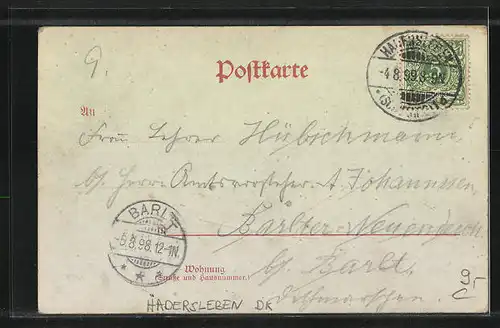 9.
Postkarte
HADERSLEBEN
-4.8.99.8-9V.
An
Frau Lehrer Hübschmann
b/. Herrn Amtsvorsteher A Johannssen
Barlter-Neuendeich
BARLT
5.8.98.12-1N.
b/. Barlt.
Wohnung
(Straße und Hausnummer.)
Dithmarschen.
HADERSLEBEN DK